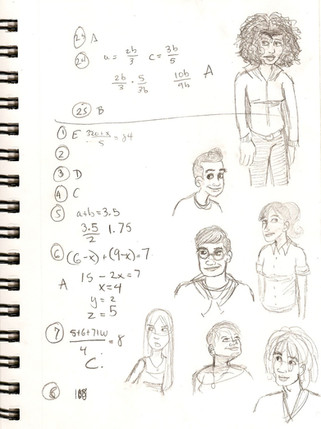 23 A
24 a = 2b/3 c = 3b/5
2b/3 · 5/3b 10b/9b A
25 B
1 E = 24
2
3 D
4 C
5 a+b = 3.5
3.5/2 1.75
6 (6-x)+(9-x)=7
15 - 2x = 7
A x = 4
y = 2
z = 5
7 5+6+7+w/4 = 8
C.
8